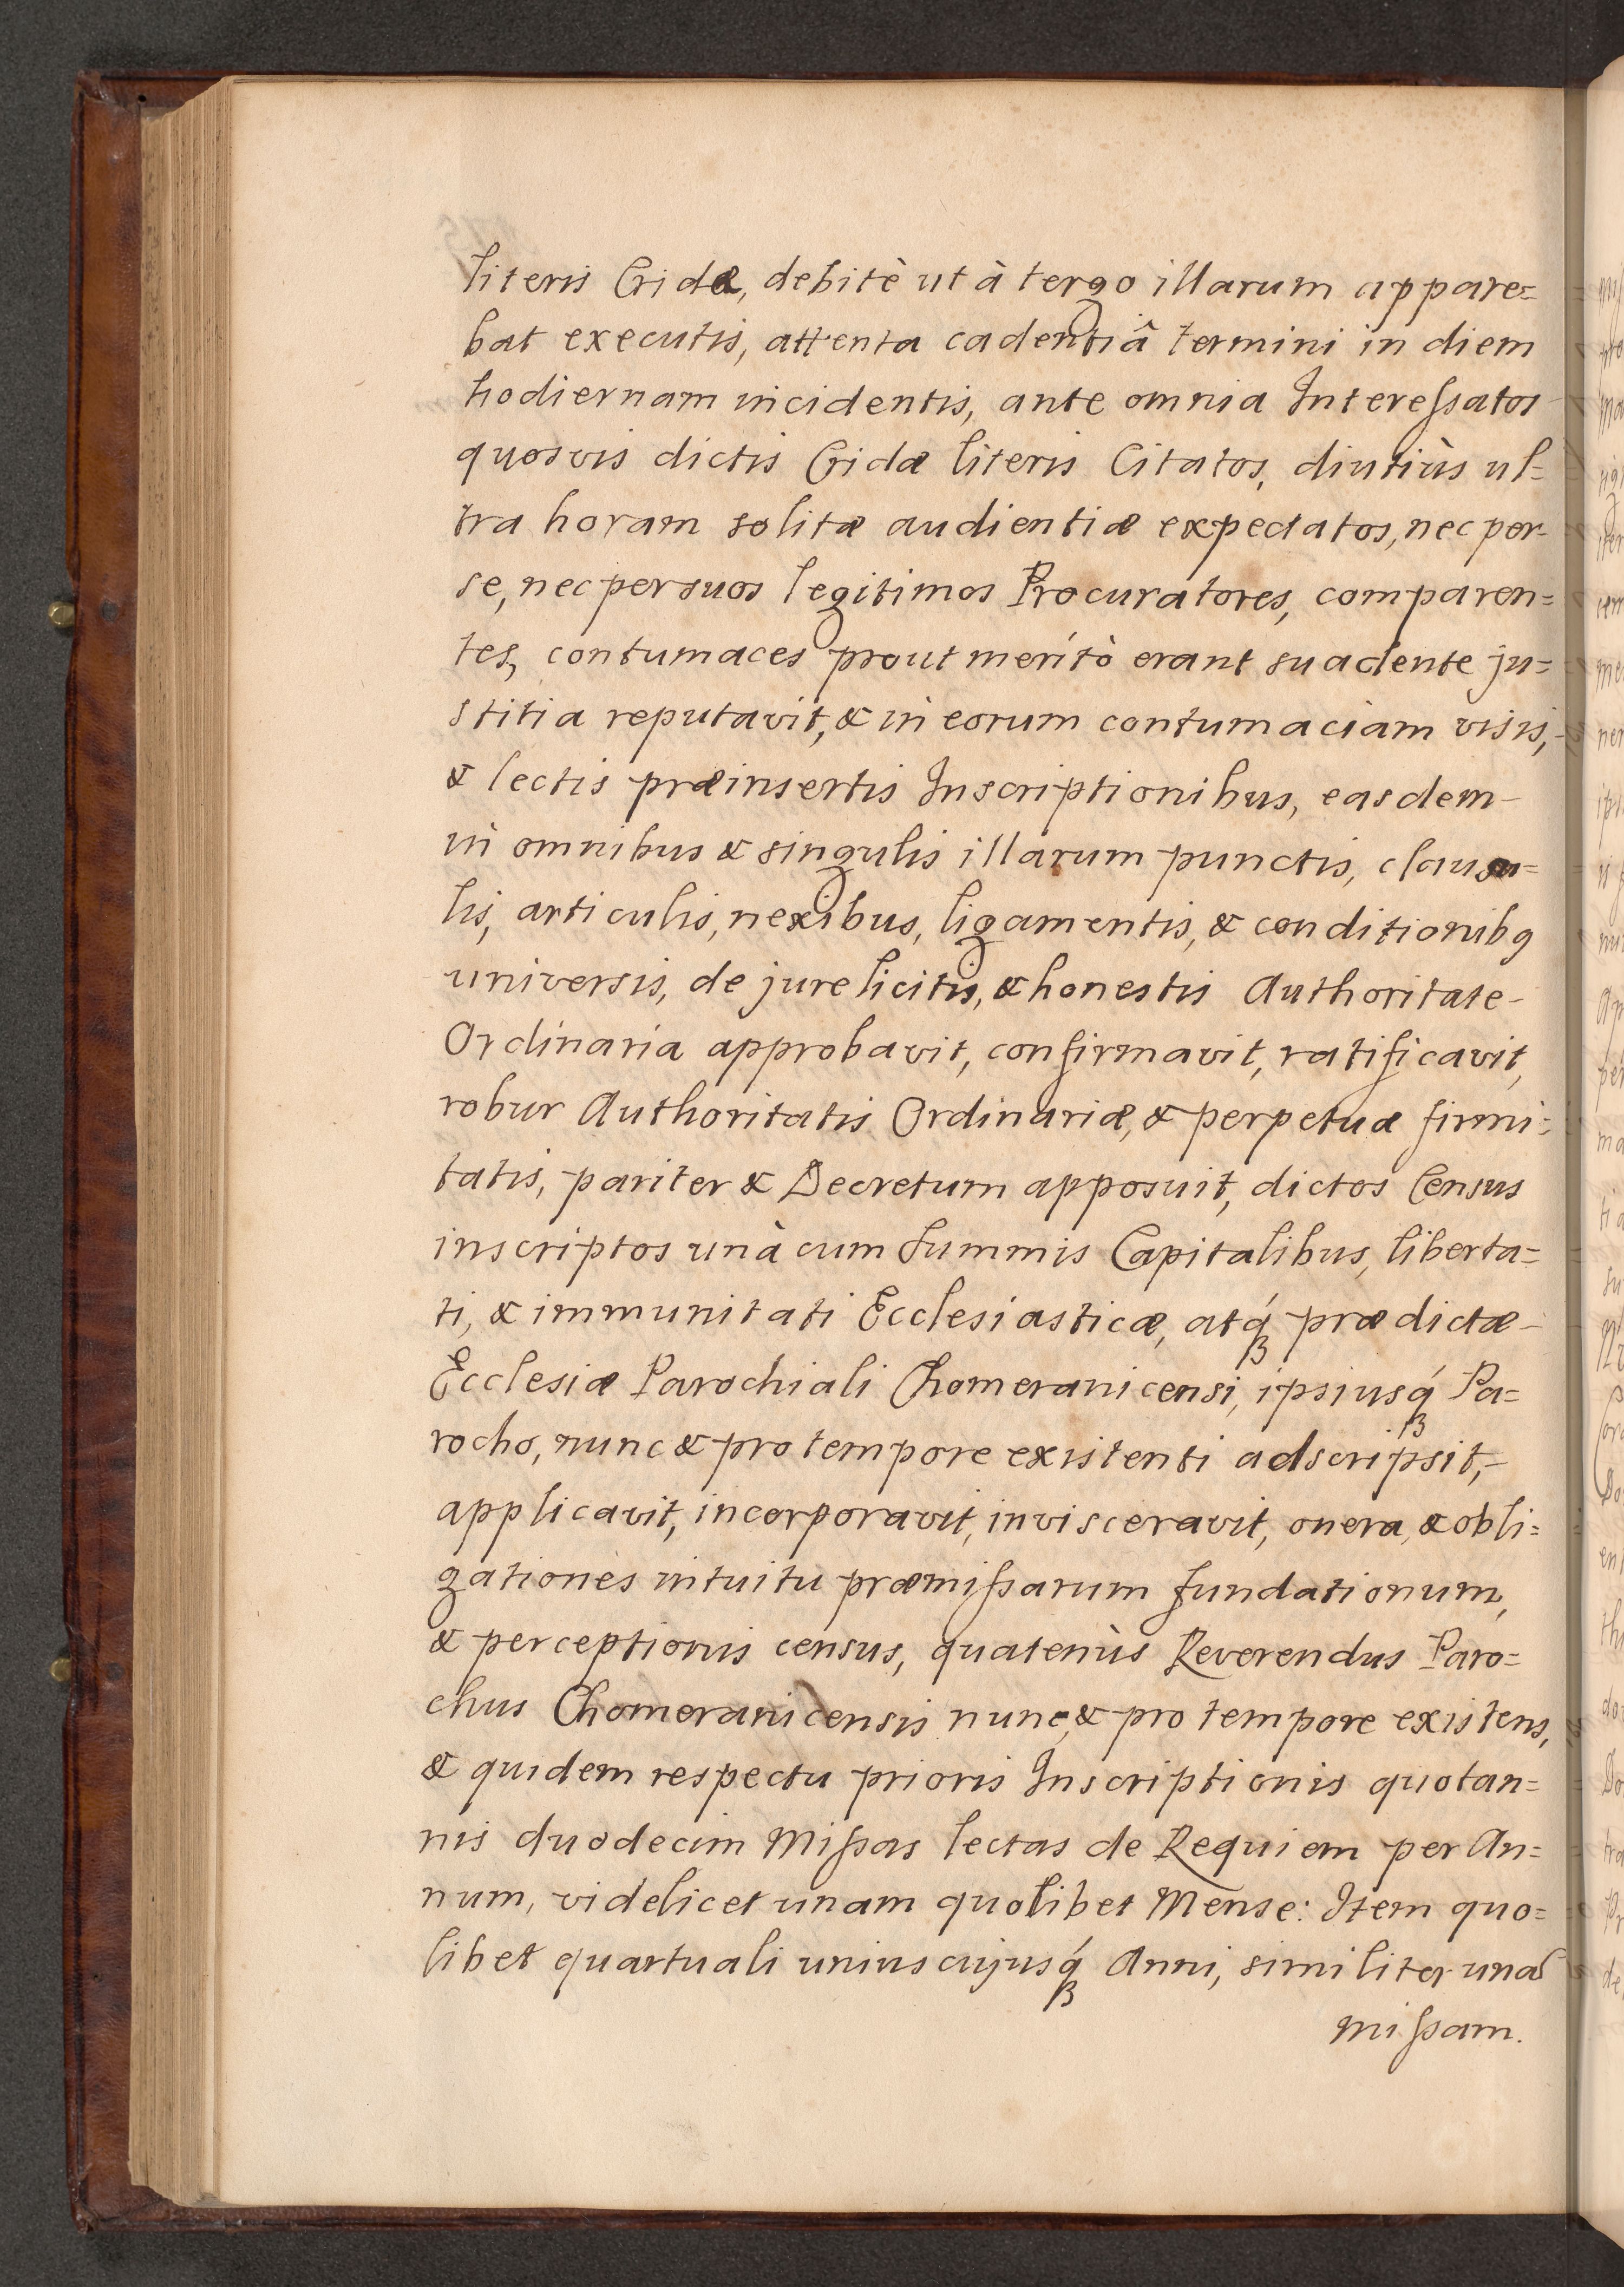 literis Cridæ, debitè ut à tergo illarum appare=
bat executis, attenta cadentiâ termini in diem
hodiernam incidentis, ante omnia Interessatos
quosvis dictis Cridæ literis Citatos, diutiùs ul=
tra horam solitæ audientiæ expectatos, nec per
se, nec per suos legitimos Procuratores, comparen=
tes, contumaces prout meritò erant suadente ju=
stitia reputavit, & in eorum contumaciam visis,
& lectis præinsertis Inscriptionibus, easdem
in omnibus & singulis illarum punctis, clausu=
lis, articulis, nexibus, ligamentis, & conditionibq
universis, de jure licitis, & honestis Authoritate
Ordinaria approbavit, confirmavit, ratificavit,
robur Authoritatis Ordinariæ, & perpetuæ firmi=
tatis, pariter & Decretum apposuit, dictos Census
inscriptos unà cum Summis Capitalibus, liberta=
ti, & immunitati Ecclesiasticæ, atq́ꝫ prædictæ
Ecclesiæ Parochiali Chomeranicensi, ipsiusq́ꝫ Pa=
rocho, nunc & pro tempore existenti adscripsit,
applicavit, incorporavit, invisceravit, onera, & obli=
gationes intuitu præmissarum fundationum,
& perceptionis census, quatenùs Reverendus Paro=
chus Chomeranicensis nunc, & pro tempore existens,
& quidem respectu prioris Inscriptionis quotan=
nis duodecim Missas lectas de Requiem per An=
num, videlicet unam quolibet Mense: Item quo=
libet quartuali uniuscujusq́ꝫ Anni, similiter unã
missam.